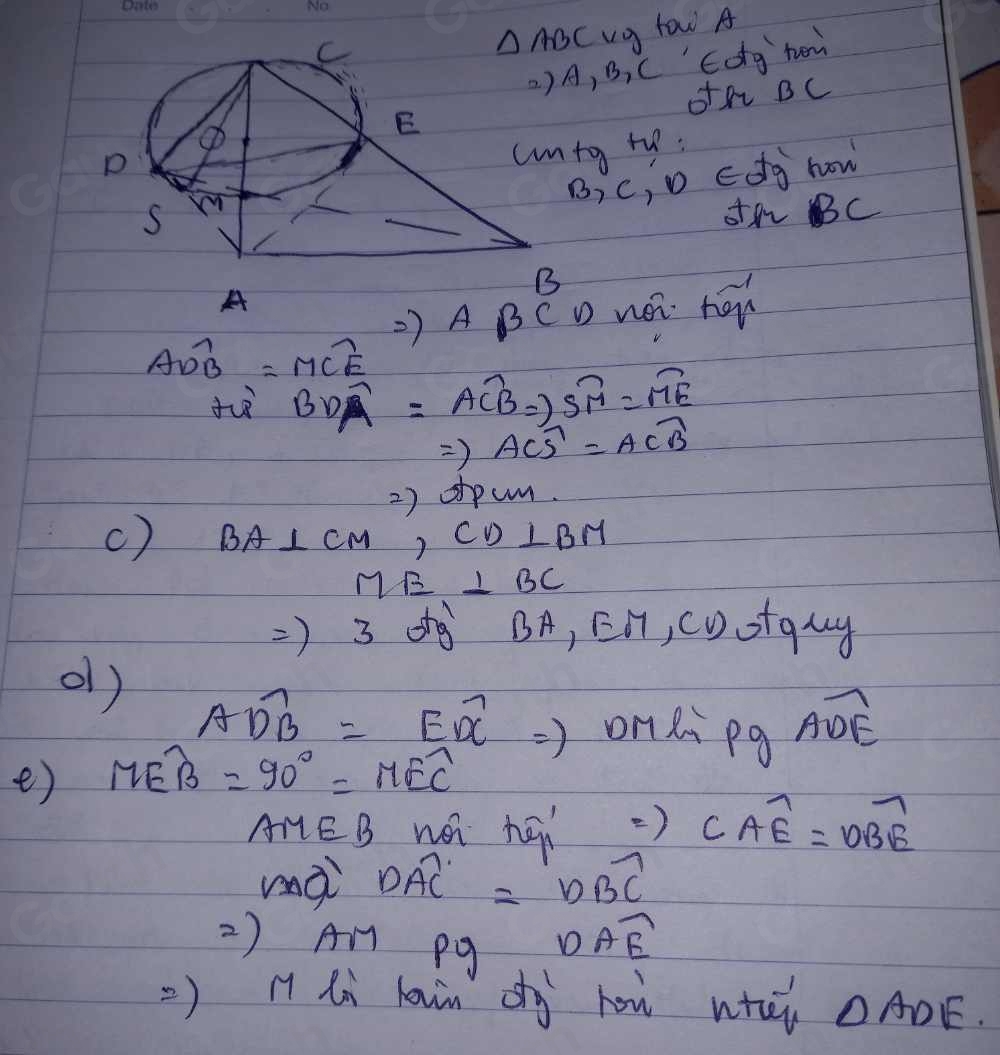 Date No
C
Δ ABC vg tại A
=) A, B, C ∈ đg tròn
đk BC
E
D
cm tg tự :
B, C, D ∈ đg tròn
đk BC
M
S
A
B
=) A B C D nội tiếp
ADB̂ = MCÊ
từ BDÂ = ACB̂ =) SM̂ = MÊ
=) ACŜ = ACB̂
=) đpcm.
c) BA ⊥ CM , CD ⊥ BM
ME ⊥ BC
=) 3 đg BA, EM, CD đ quy
d)
ADB̂ = EDĈ =) DM là pg ADÊ
e) MEB̂ = 90° = MEĈ
AMEB nội tiếp =) CAÊ = DBÊ
mà DAĈ = DBĈ
=) AM pg DAÊ
=) M là tâm đg tròn ntiếp Δ ADE.